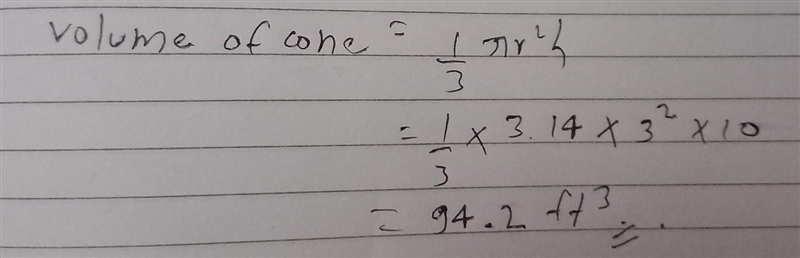 Volume of cone = 1/3 πr²h
= 1/3 × 3.14 × 3² × 10
= 94.2 ft³.